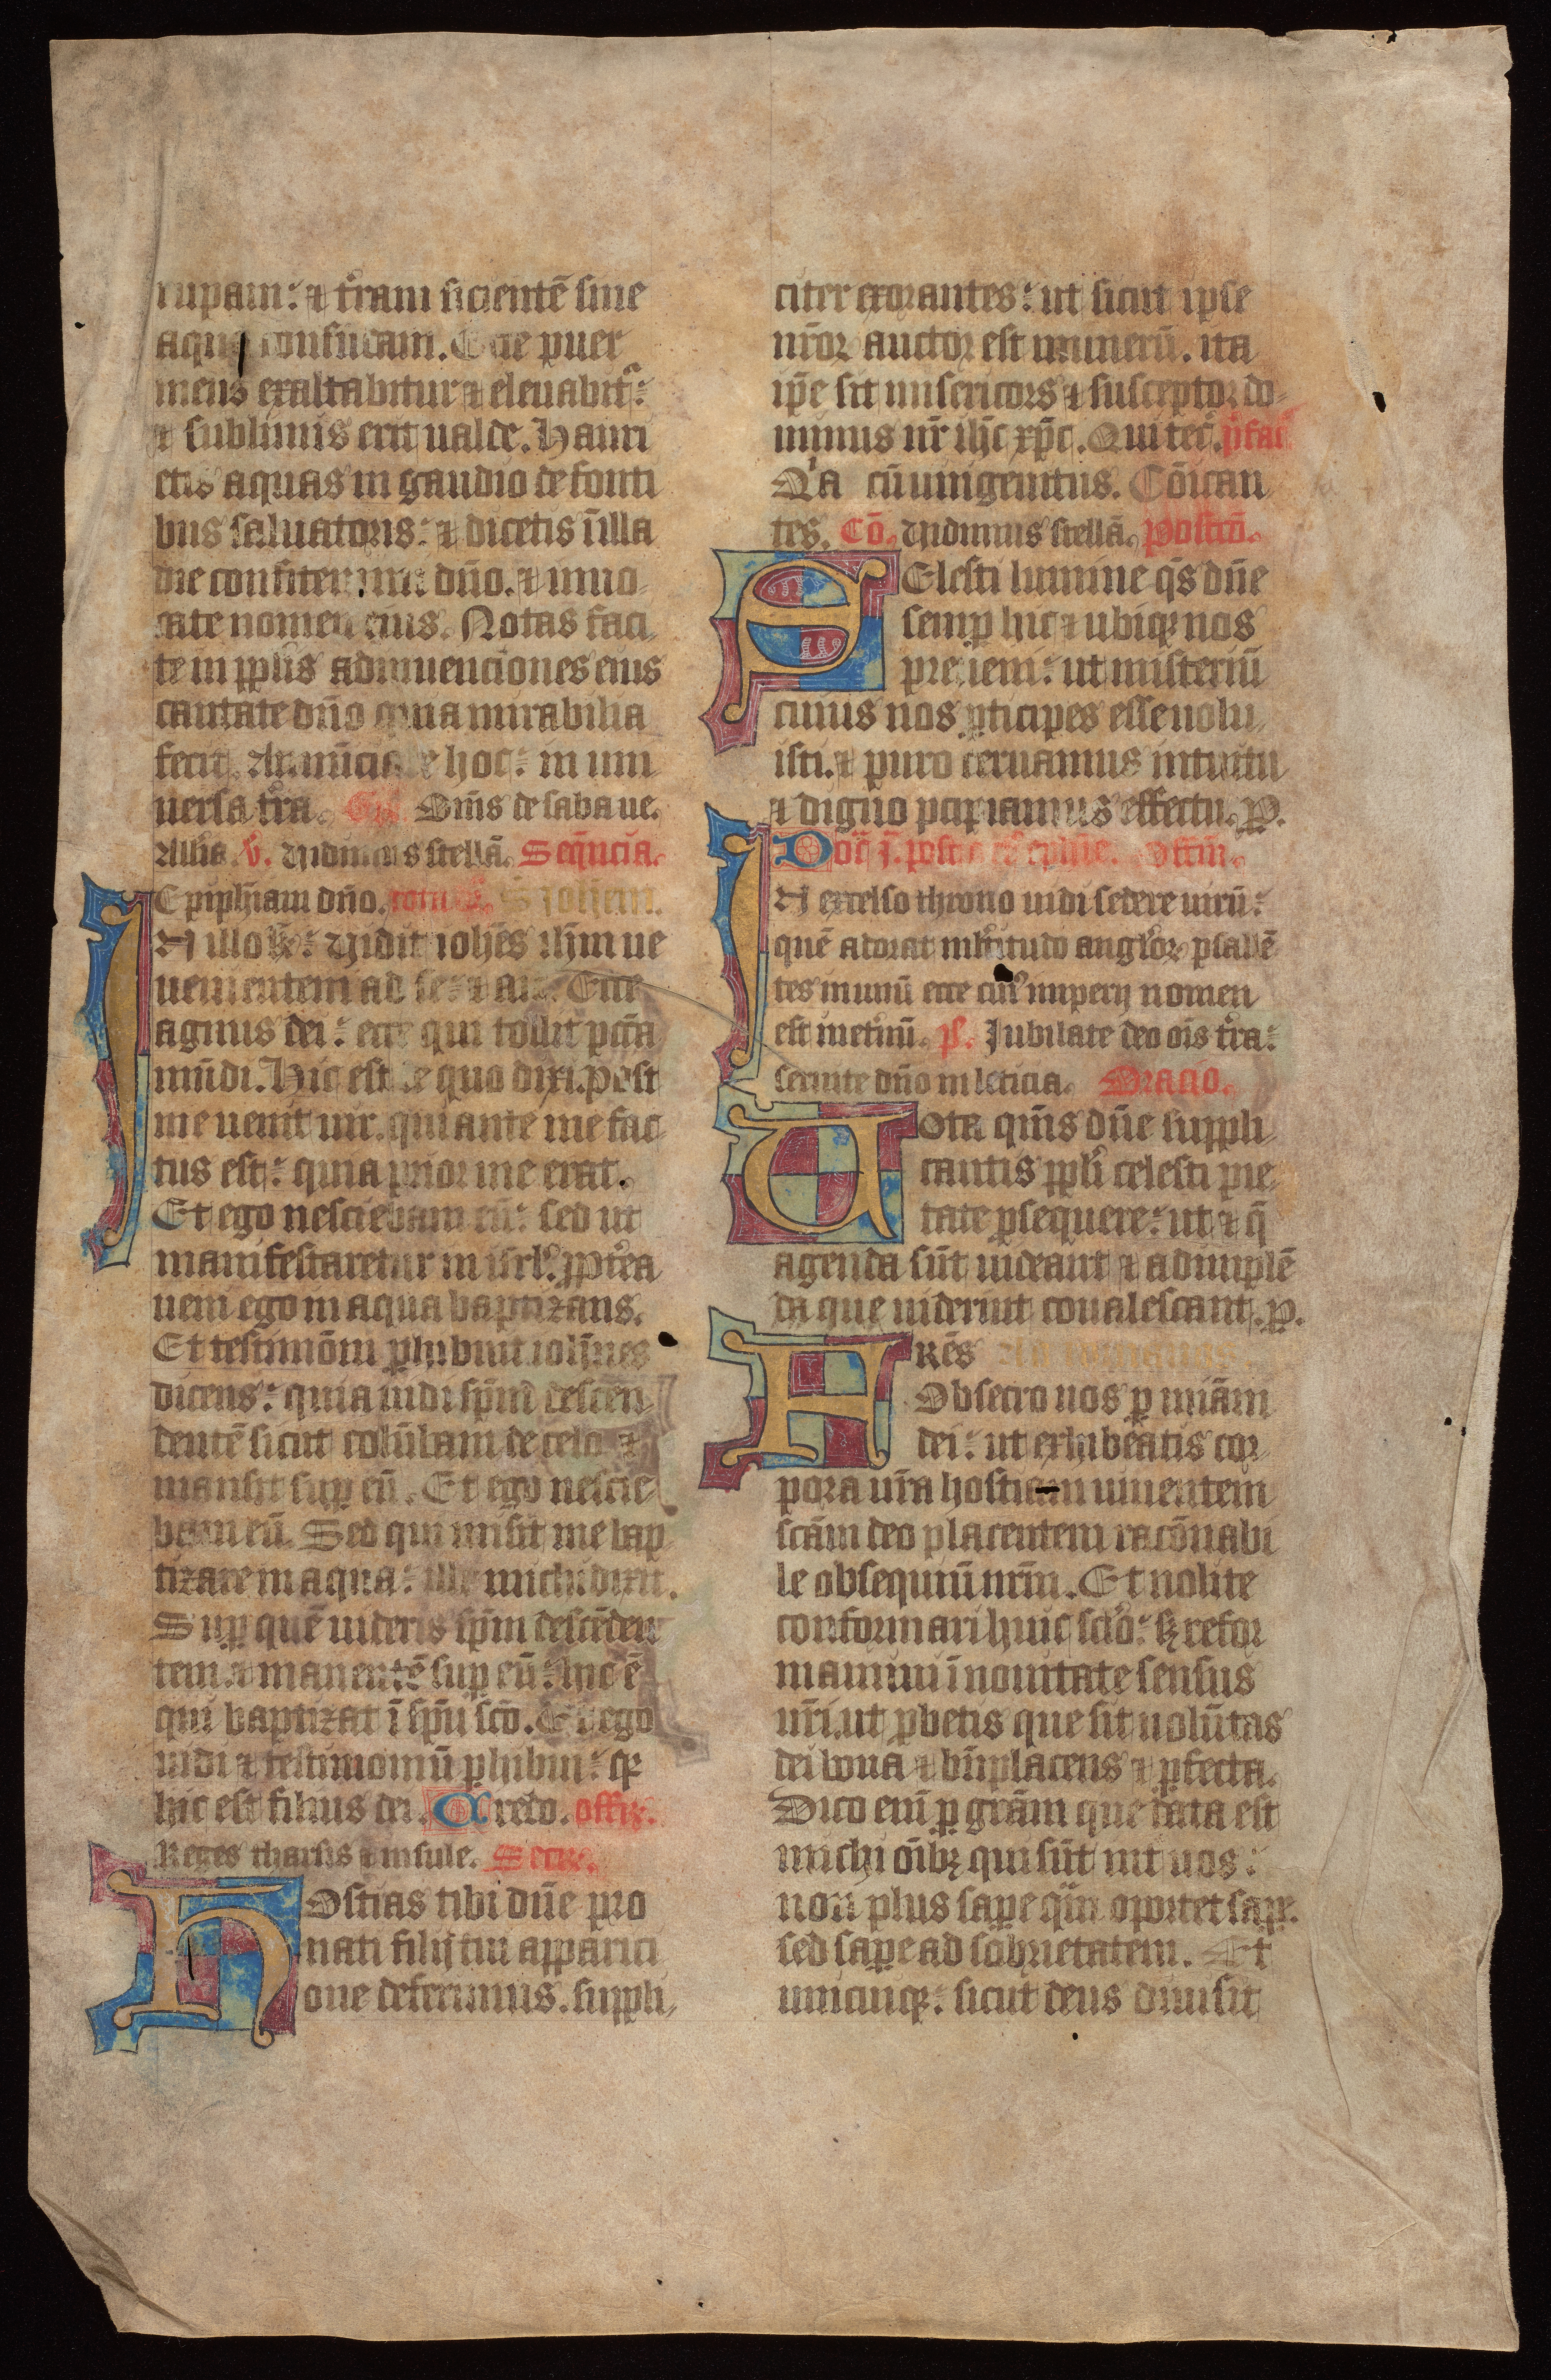 rupam: ⁊ t̄ram sicientē sine
aqua confundam. Ecce puer
meus exaltabitur ⁊ eleuabit᷑:
⁊ sublimis erit ualde. Hauri
etis aquas in gaudio de fonti
bus saluatoris: ⁊ dicetis ī illa
die confitemini dn̄o. ⁊ inuo
cate nomen eius. Notas faci
te in ppl̄is adinuenciones eius
cantate dn̄o quia mirabilia
fecit. Annūciate hoc: in uni
uersa t̄ra. Om̄s de saba ue.
All̄ia v̄. Uidimus stellā. Seq̄ncia.
Epiph̄iam dn̄o. Joh̄em.
IN illo t̄: Uidit ioh̄es ih̄m ue
uenientem ad se: ⁊ ait. Ecce
agnus dei: ecce qui tollit pcc̄a
mūdi. Hic est de quo dixi. post
me uenit uir. qui ante me fac
tus est: quia prior me erat.
Et ego nesciebam eū: sed ut
manifestaretur in isrl̄. ꝓpt̄ea
ueni ego in aqua baptizans.
Et testimōm ꝑhibuit ioh̄nes
dicens: quia uidi sp̄m descen
dentē sicut colūbam de celo ⁊
mansit suꝑ eū. Et ego nescie
bam eū. Sed qui misit me bap
tizare in aqua: ille michi dixit.
Suꝑ quē uideris sp̄m descēden
tem. ⁊ manentē suꝑ eū: hic ē
qui baptizat ī sp̄u sc̄o. Et ego
uidi ⁊ testimoniū ꝑhibui: qꝛ
hic est filius dei. Credo. offꝛ.
Reges tharsis ⁊ insule. Secre.
HOstias tibi dn̄e pro
nati filij tui apparici
one deferimus. suppli
citer exorantes: ut sicut ipse
nr̄oꝝ auctor est munerū. ita
ip̄e sit misericors ⁊ susceptor do
minus nr̄ ih̄c xp̄c. Qui tec̄. p̄fac̄
Qꝛa cū unigenitus. Cōican
tes. Cō. Uidimus stellā. Postcō.
CElesti lumine qs̄ dn̄e
semꝑ hic ⁊ ubiqꝫ nos
preueni: ut misteriū
cuius nos ꝑticipes esse uolu
isti. ⁊ puro cernamus intuitu
⁊ digno ꝑcipiamus effectu. ꝑ.
Do᷑ j. post Offm̄.
IN excelso throno uidi sedere uirū:
quē adorat ml̄titudo angl̄oꝝ psallē
tes in unū ecce cui᷒ imperij nomen
est in et̄nū. p̄s. Jubilate deo om̄s t̄ra:
seruite dn̄o in leticia. Oracio.
UOta qm̄s dn̄e suppli
cantis ppl̄i celesti pie
tate ꝓsequere: ut ⁊ q̄
agenda sūt uideant ⁊ ad implē
da que uiderint conalescant. ꝑ.
FRēs
Obsecro uos ꝑ mīam
dei: ut exhibeatis cor
pora ur̄a hostiam uiuentem
sc̄am deo placentem racōnabi
le obsequiū ur̄m. Et nolite
conformari huic sc̄lo: sꝫ refor
mamini ī nouitate sensus
ur̄i. ut ꝓbetis que sit uolūtas
dei bona ⁊ bn̄placens ⁊ ꝑfecta.
Dico enī ꝑ gr̄am que data est
michi oīb᷒ qui sūt int̄ uos:
non plus saꝑe qm̄ oportet saꝑe.
sed saꝑe ad sobrietatem. Et
unicuiqꝫ: sicut deus diuisit